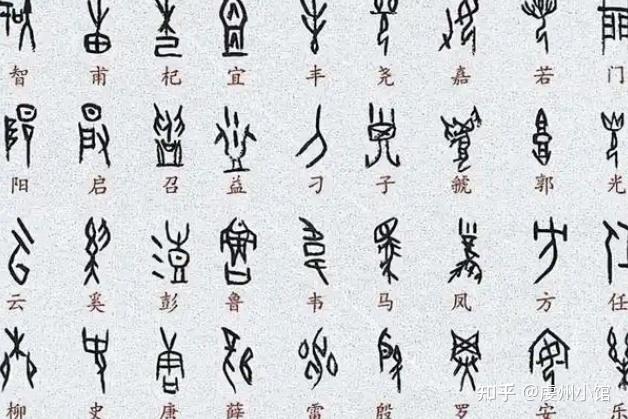 智 甫 杞 宜 丰 尧 嘉 若 门
阳 启 召 益 刁 子 虢 郭 光
云 奚 彭 鲁 韦 马 凤 方 任
柳 史 唐 薛 雷 殷 罗 安 乐
知乎 @虔州小馆